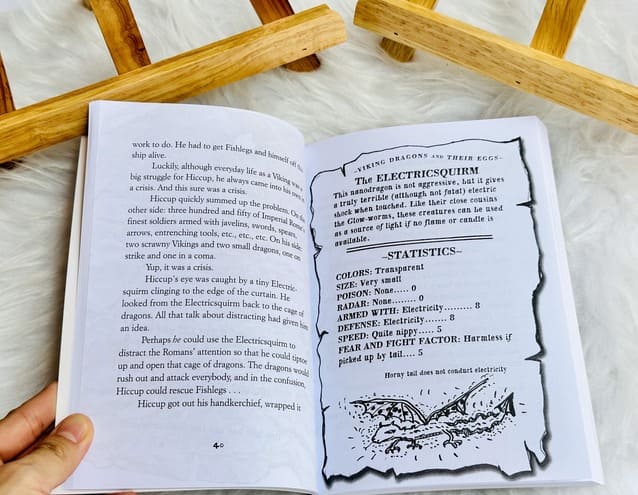 work to do. He had to get Fishlegs and himself off this
ship alive.
Luckily, although everyday life as a Viking was a
big struggle for Hiccup, he always came into his own in
a crisis. And this sure was a crisis.
Hiccup quickly summed up the problem. On the
other side: three hundred and fifty of Imperial Rome's
finest soldiers armed with javelins, swords, spears,
arrows, entrenching tools, etc., etc., etc. On his side:
two scrawny Vikings and two small dragons, one on
strike and one in a coma.
Yup, it was a crisis.
Hiccup's eye was caught by a tiny Electric-
squirm clinging to the edge of the curtain. He
looked from the Electricsquirm back to the cage of
dragons. All that talk about distracting had given him
an idea.
Perhaps he could use the Electricsquirm to
distract the Romans' attention so that he could tiptoe
up and open that cage of dragons. The dragons would
rush out and attack everybody, and in the confusion,
Hiccup could rescue Fishlegs . . .
Hiccup got out his handkerchief, wrapped it
40
~VIKING DRAGONS AND THEIR EGGS~
The ELECTRICSQUIRM
This nanodragon is not aggressive, but it gives
a truly terrible (although not fatal) electric
shock when touched. Like their close cousins
the Glow-worms, these creatures can be used
as a source of light if no flame or candle is
available.
~STATISTICS~
COLORS: Transparent
SIZE: Very small
POISON: None..... 0
RADAR: None........ 0
ARMED WITH: Electricity......... 8
DEFENSE: Electricity....... 8
SPEED: Quite nippy..... 5
FEAR AND FIGHT FACTOR: Harmless if
picked up by tail.... 5
Horny tail does not conduct electricity